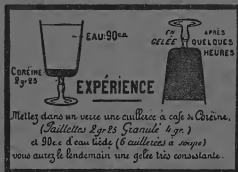 EAU:90c.c.
CORÉINE
2 gr. 25
EN GELÉE
APRÈS
QUELQUES
HEURES
EXPÉRIENCE
Mettez dans un verre une cuillerée à café de Coréine,
(Paillettes 2 gr. 25 Granulé 4 gr.)
et 90 c.c d'eau tiède (6 cuillerées à soupe)
vous aurez le lendemain une gelée très consistante.